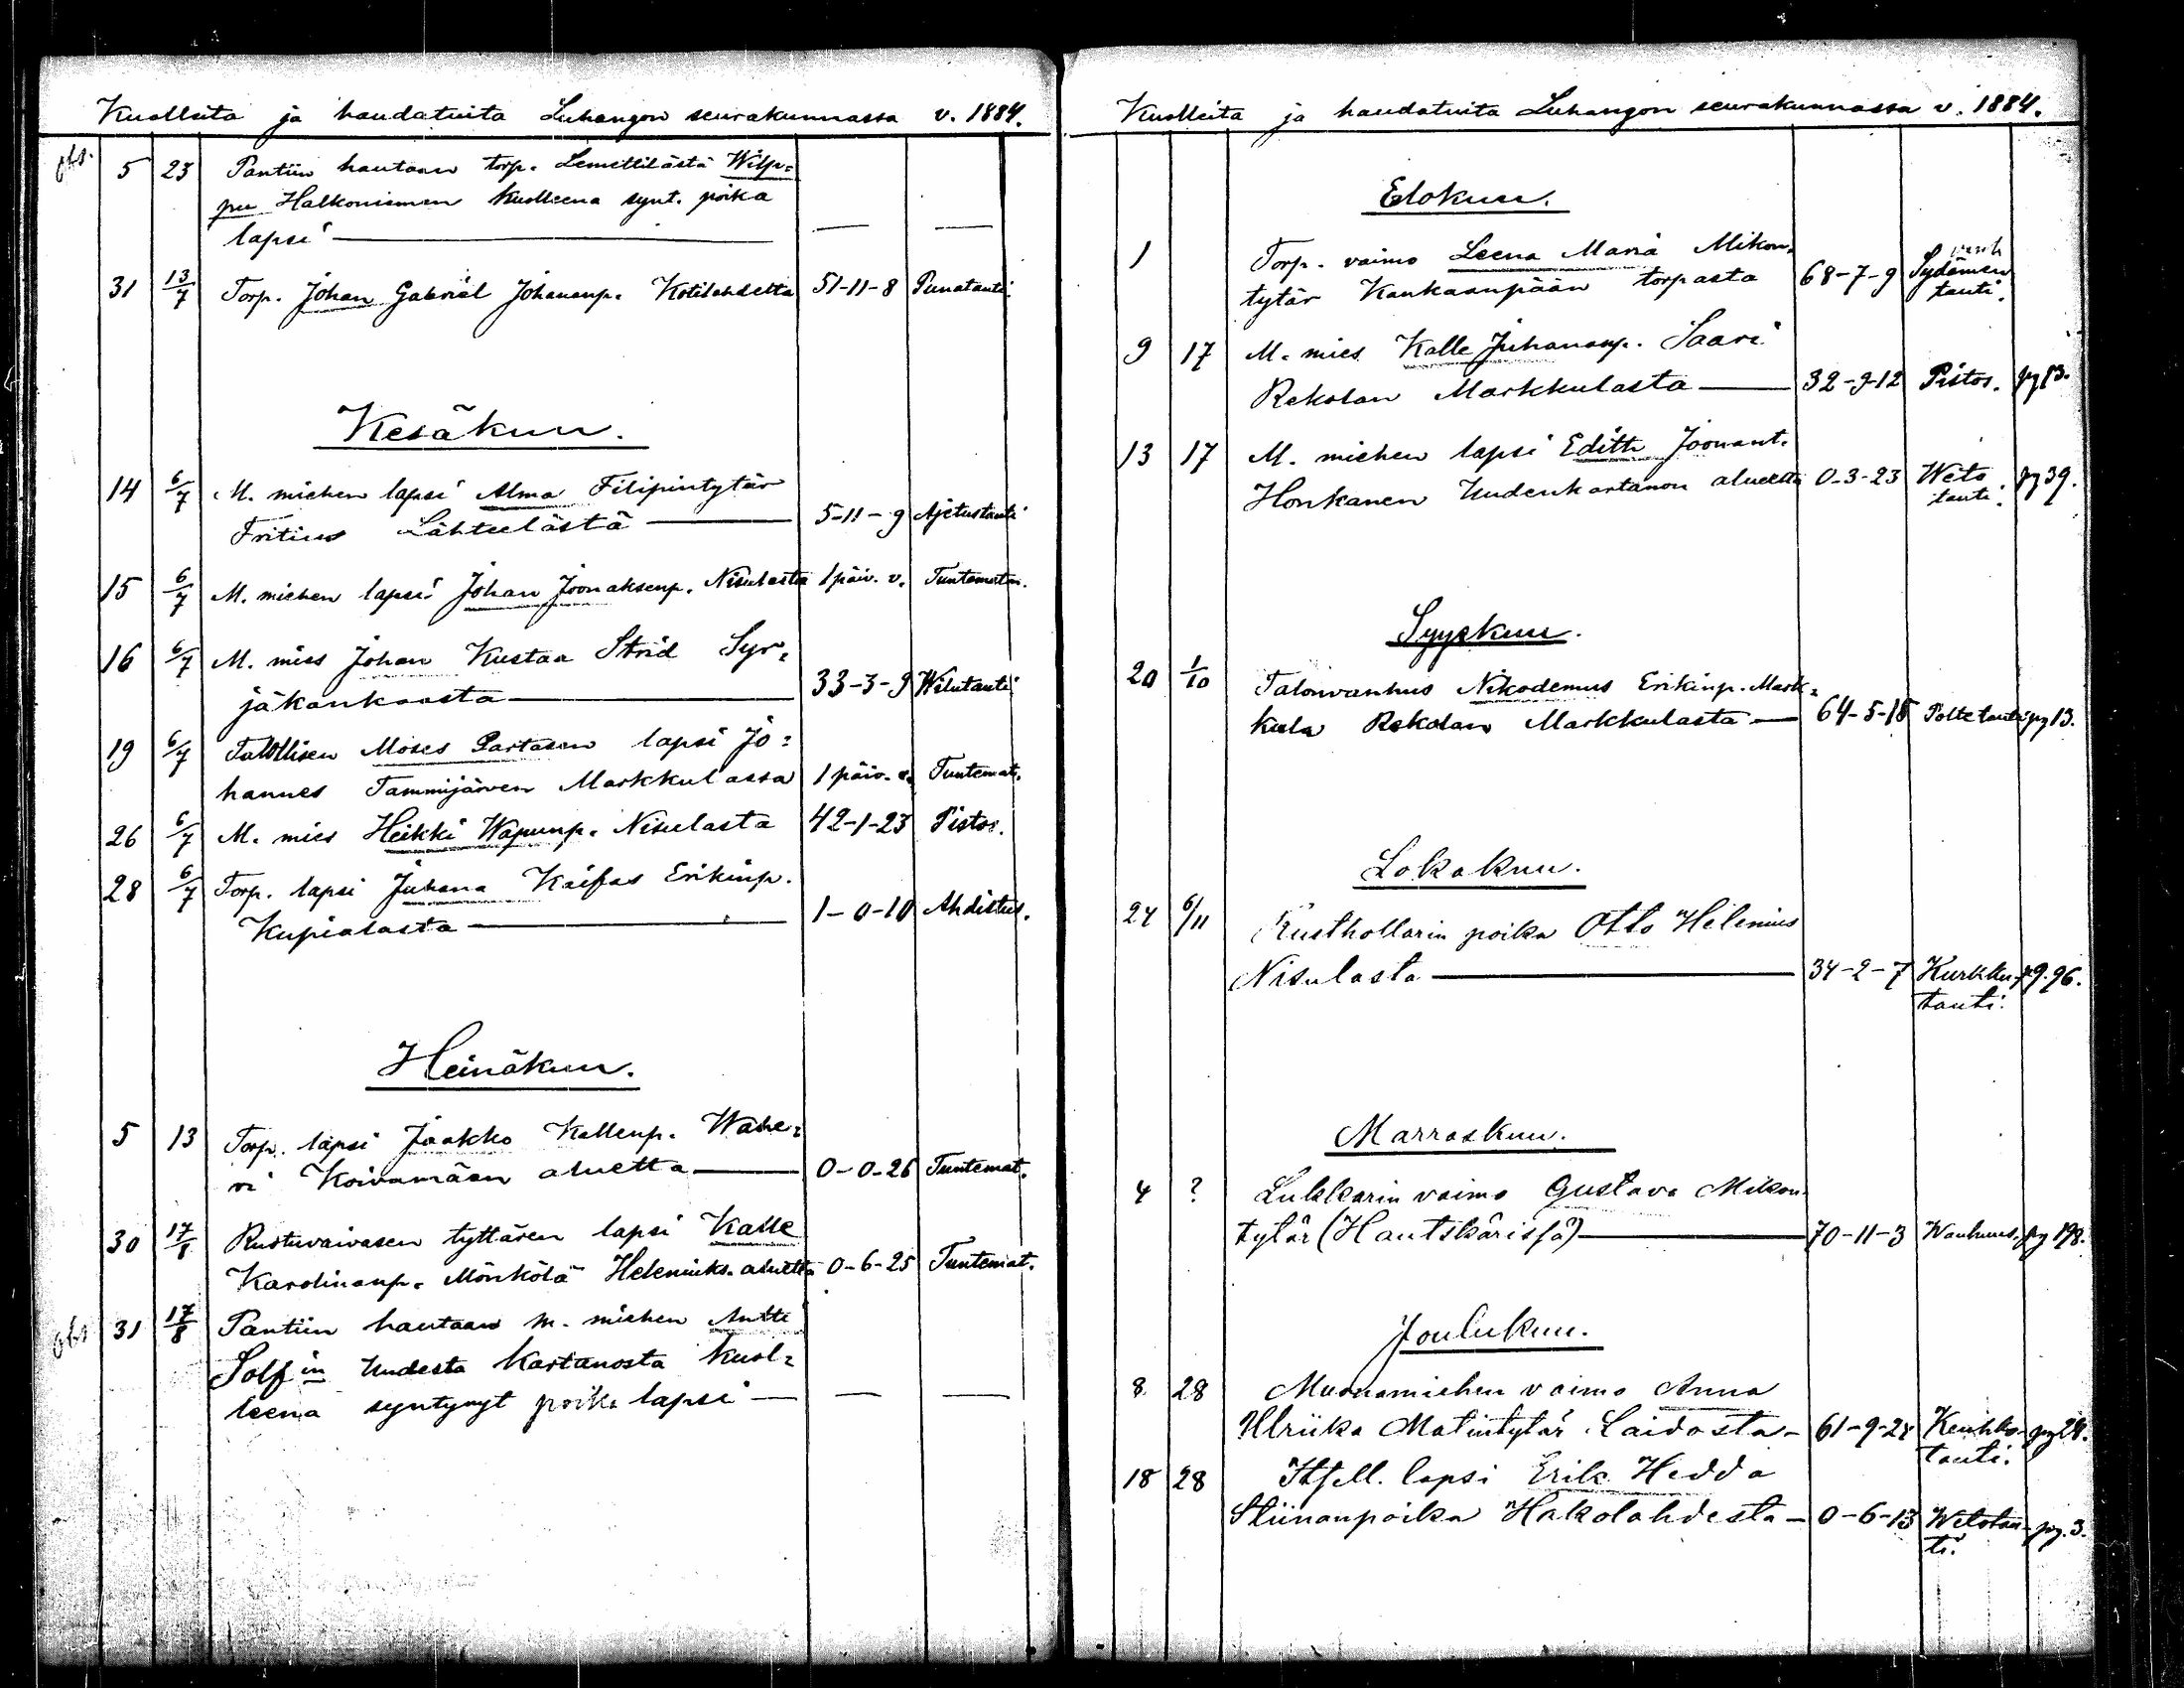 Kuolleita ja haudatuita Luhangon seurakunnassa v. 1884.
obs. 5 23 Pantiin hautaan torp. Lemettilästä Wilp=
pu Halkoniemen kuolleena synt. poika
lapsi — — —
31 13/7 Torp. Johan Gabriel Johananp. Kotilahdelta 51-11-8 Punatauti.
Kesäkuu.
14 6/7 M. miehen lapsi Alma Filipintytär
Fritius Lähteelästä — 5-11-9 Ajetustauti
15 6/7 M. miehen lapsi Johan Joonaksenp. Nisulasta 1 päiv. v. Tuntematon.
16 6/7 M. mies Johan Kustaa Strid Syr=
jäkankaasta — 33-3-9 Wilutauti
19 6/7 Talollisen Moses Partasen lapsi Jo=
hannes Tammijärven Markkulassa 1 päiv. v. Tuntemat.
26 6/7 M. mies Heikki Wapunp. Nisulasta 42-1-23 Pistos.
28 6/7 Torp. lapsi Juhana Kaifas Erikinp.
Kupialasta — 1-0-10 Ahdistus.
Heinäkuu.
5 13 Torp. lapsi Jaakko Kallenp. Wahe=
ri Koivumäen aluetta — 0-0-26 Tuntemat.
30 17/8 Ruotuvaivasen tyttären lapsi Kalle
Karolinanp. Mönkölä Heleniuks. aluetta 0-6-25 Tuntemat.
obs 31 17/8 Pantiin hautaan m. miehen Antti
Solf in Uudesta Kartanosta kuol=
leena syntynyt poika lapsi — — —
Kuolleita ja haudatuita Luhangon seurakunnassa v. 1884.
Elokuu.
1 Torp. vaimo Leena Maria Mikon=
tytär Kankaanpään torpasta 68-7-9 Sydämen
tauti.
9 17 M. mies Kalle Juhananp. Saari
Rekolan Markkulasta — 32-9-12 Pistos. pg 13.
13 17 M. miehen lapsi Edith Joonant.
Honkanen Uudenkartanon aluetta 0-3-23 Weto
tauti. pg 39.
Syyskuu.
20 1/10 Talonvanhus Nikodemus Erikinp. Mark=
kula Rekolan Markkulasta — 64-5-15 Poltetauti pg 13.
Lokakuu.
24 6/11 Rusthollarin poika Otto Helenius
Nisulasta — 34-2-7 Kurkku- pg. 96.
tauti.
Marraskuu.
4 ? Lukkarin vaimo Gustava Mikon-
tytär (Hautskärissä) — 70-11-3 Wanhuus. pg 198.
Joulukuu.
8 28 Muonamiehen vaimo Anna
Ulriika Matintytär Laidasta — 61-9-24 Keuhko- pg 28.
tauti.
18 28 Itsell. lapsi Erik Hedda
Stiinanpoika Hakolahdesta — 0-6-13 Wetotau- pg. 3.
ti.